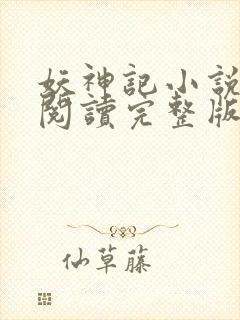 妖神記小說
閱讀完整版
仙草藤